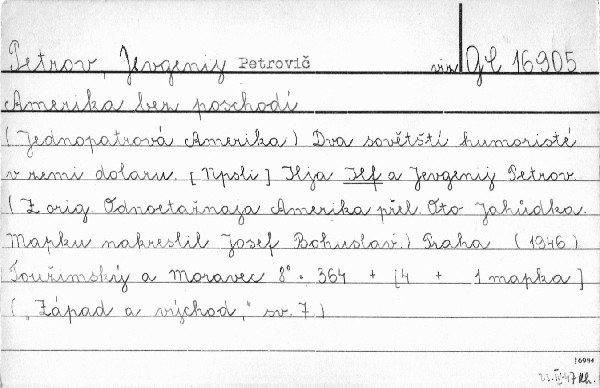 Petrov, Jevgenij Petrovič viz Gl 16905
Amerika bez poschodí
(Jednopatrová Amerika) Dva sovětští humoristé
v zemi dolaru. [Npsli] Ilja Ilf a Jevgenij Petrov.
(Z orig. Odnoetažnaja Amerika přel. Oto Jahůdka.
Mapku nakreslil Josef Bohuslav.) Praha (1946)
Touřimský a Moravec 8° . 364 + [4 + 1 mapka]
("Západ a východ," sv. 7.)
16994